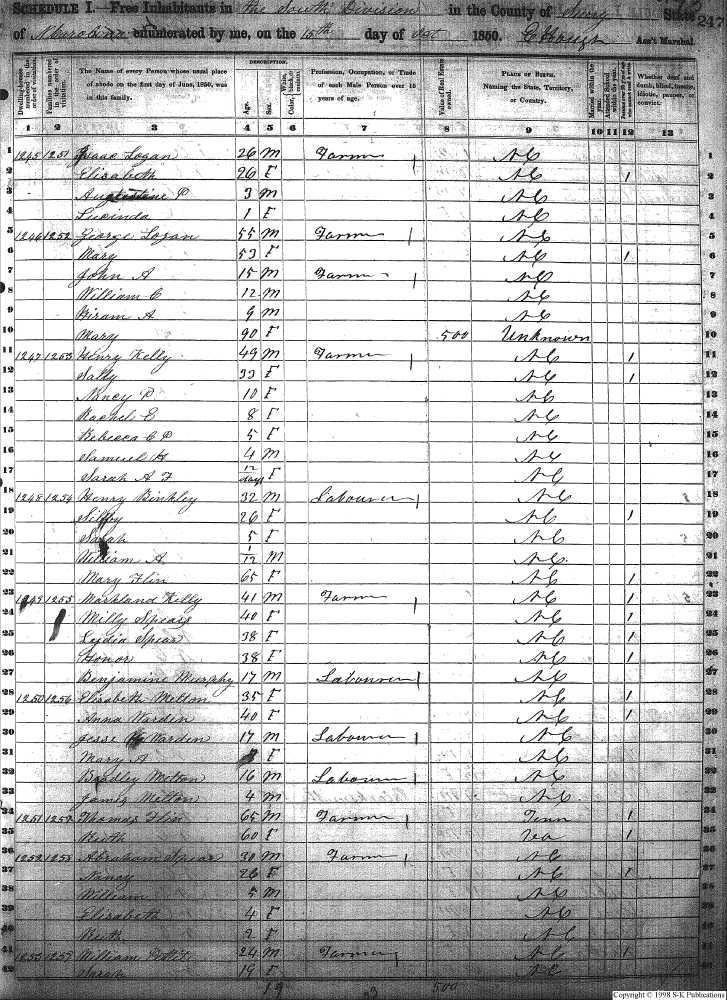 SCHEDULE I.—Free Inhabitants in the South Division in the County of Surry State
247
of N Carolina enumerated by me, on the 15th day of Oct 1850. Ass't Marshal.
DESCRIPTION.
Dwelling-houses numbered in the order of visitation.
Families numbered in the order of visitation.
The Name of every Person whose usual place of abode on the first day of June, 1850, was in this family.
Age.
Sex.
Color, White, black, or mulatto.
Profession, Occupation, or Trade of each Male Person over 15 years of age.
Value of Real Estate owned.
PLACE OF BIRTH. Naming the State, Territory, or Country.
Married within the year.
Attended School within the year.
Whether deaf and dumb, blind, insane, idiotic, pauper, or convict.
1 2 3 4 5 6 7 8 9 10 11 12 13
1 1245 1251 Isaac Logan 26 M Farmer 1 NC 1
2 Elisabeth 26 F NC 1 2
3 Augustine P 3 M NC 3
4 Lucinda 1 F NC 4
5 1246 1252 George Logan 55 M Farmer 1 NC 5
6 Mary 53 F NC 1 6
7 John A 15 M Farmer 1 NC 7
8 William C 12 M NC 8
9 Hiram A 9 M NC 9
10 Mary 90 F 500 Unknown 10
11 1247 1253 Henry Kelly 49 M Farmer 1 NC 1 11
12 Sally 33 F NC 1 12
13 Nancy P 10 F NC 13
14 Rachel E 8 F NC 14
15 Rebecca C P 5 F NC 15
16 Samuel H 4 M NC 16
17 Sarah A F 12 days F NC 17
18 1248 1254 Henry Binkley 32 M Labourer 1 NC 18
19 26 F NC 1 19
20 Sarah 5 F NC 20
21 William A 1/12 M NC 21
22 Mary Flin 65 F NC 1 22
23 1249 1255 Markland Kelly 41 M Farmer 1 NC 1 23
24 Milly Spears 40 F NC 1 24
25 Lydia Spear 38 F NC 1 25
26 Honor 38 F NC 1 26
27 Benjamine Murphy 17 M Labourer 1 NC 27
28 1250 1256 Elisabeth Melton 35 F NC 1 28
29 Anna Warden 40 F NC 1 29
30 Jesse Warden 17 M Labourer 1 NC 30
31 Mary A F NC 31
32 Bradley Melton 16 M Labourer 1 NC 32
33 James Melton 4 M NC 33
34 1251 1257 Thomas Flin 65 M Farmer 1 Tenn 1 34
35 Ruth 60 F Va 1 35
36 1252 1258 Abraham Spear 30 M Farmer 1 NC 36
37 Nancy 26 F NC 1 37
38 William 5 M NC 38
39 Elisabeth 4 F NC 39
40 Ruth 2 F NC 40
41 1253 1259 William 24 M Farmer NC 1 41
42 Sarah 19 F NC 42
19 500
Copyright © 1998 S-K Publications